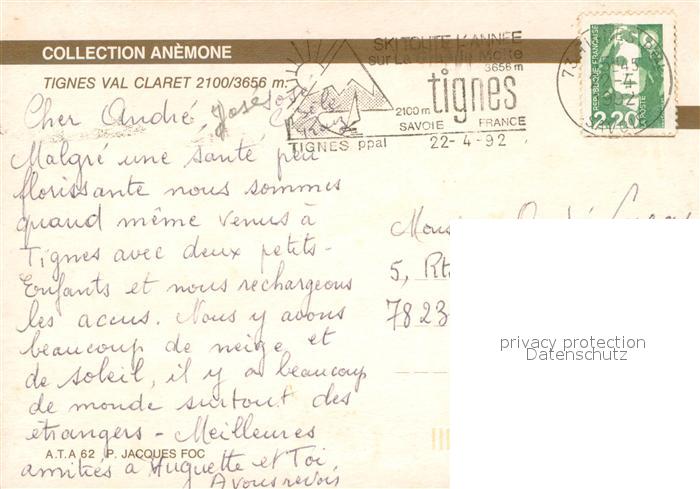 COLLECTION ANÈMONE
TIGNES VAL CLARET 2100/3656 m.
SKI TOUTE L'ANNÉE
sur La Grande Motte
3656 m
tignes
2100 m
SAVOIE FRANCE
TIGNES ppal 22-4-92
73
1992
SAVOIE
REPUBLIQUE FRANÇAISE
POSTE
2,20
Cher André, José José
Malgré une santé peu
florissante nous sommes
quand même venus à
Tignes avec deux petits-
Enfants et nous rechargeons
les accus. Nous y avons
beaucoup de neige et
de soleil, il y a beaucoup
de monde surtout des
étrangers - Meilleures
amitiés à Huguette et Toi,
A vous revoir
A.T.A 62 P. JACQUES FOC
5, Rt
7823
privacy protection
Datenschutz